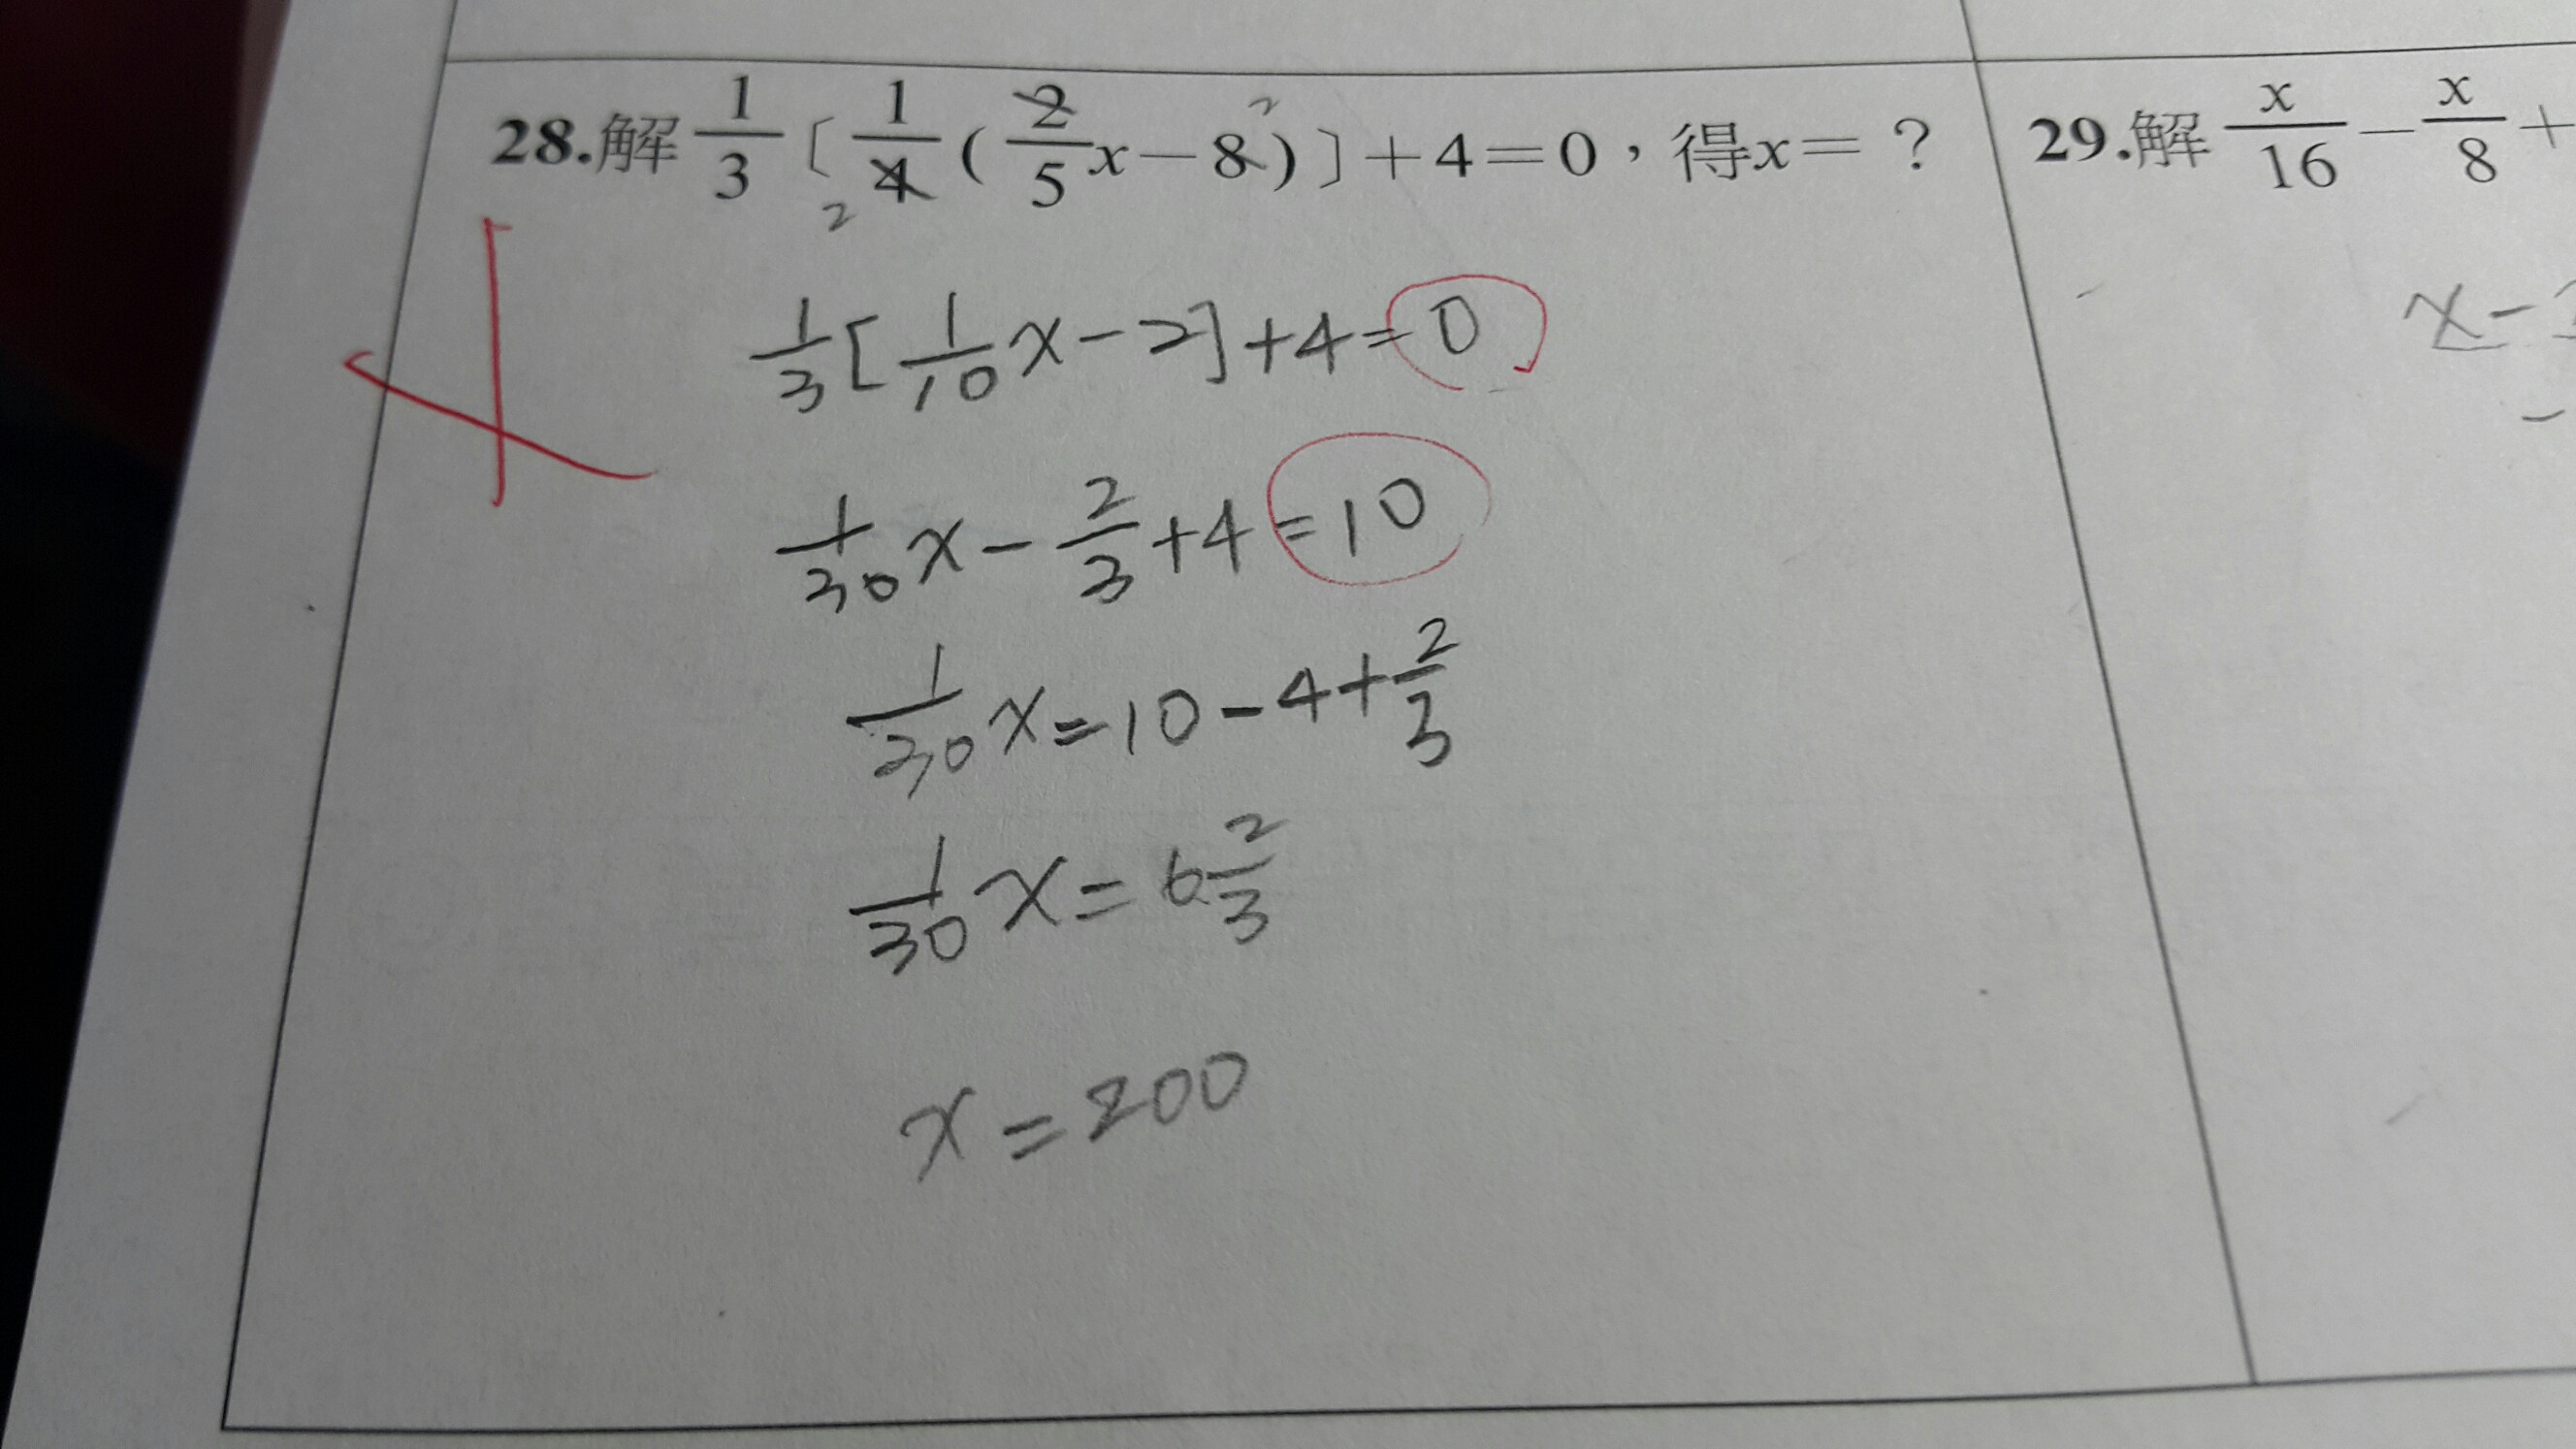 28.解 1/3〔1/4(2/5x−8)〕+4=0，得x=？
2
2
1/3[1/10x-2]+4=0
1/30x-2/3+4=10
1/30x=10-4+2/3
1/30x=6 2/3
x=200
29.解 x/16−x/8+
x-